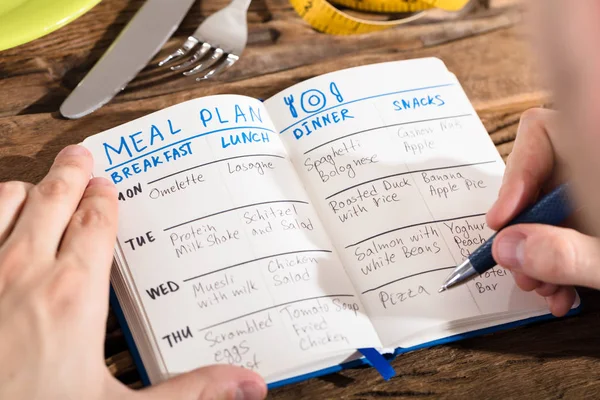 MEAL PLAN
BREAKFAST LUNCH
MON Omelette Lasagne
TUE Protein Milk Shake Schitzel and Salad
WED Muesli with milk Chicken Salad
THU Scrambled eggs Tomato Soup Fried Chicken
DINNER SNACKS
Spaghetti Bolognese Cashew Nut Apple
Roasted Duck with rice Banana Apple Pie
Salmon with white Beans Yoghur Peach
Pizza Bar